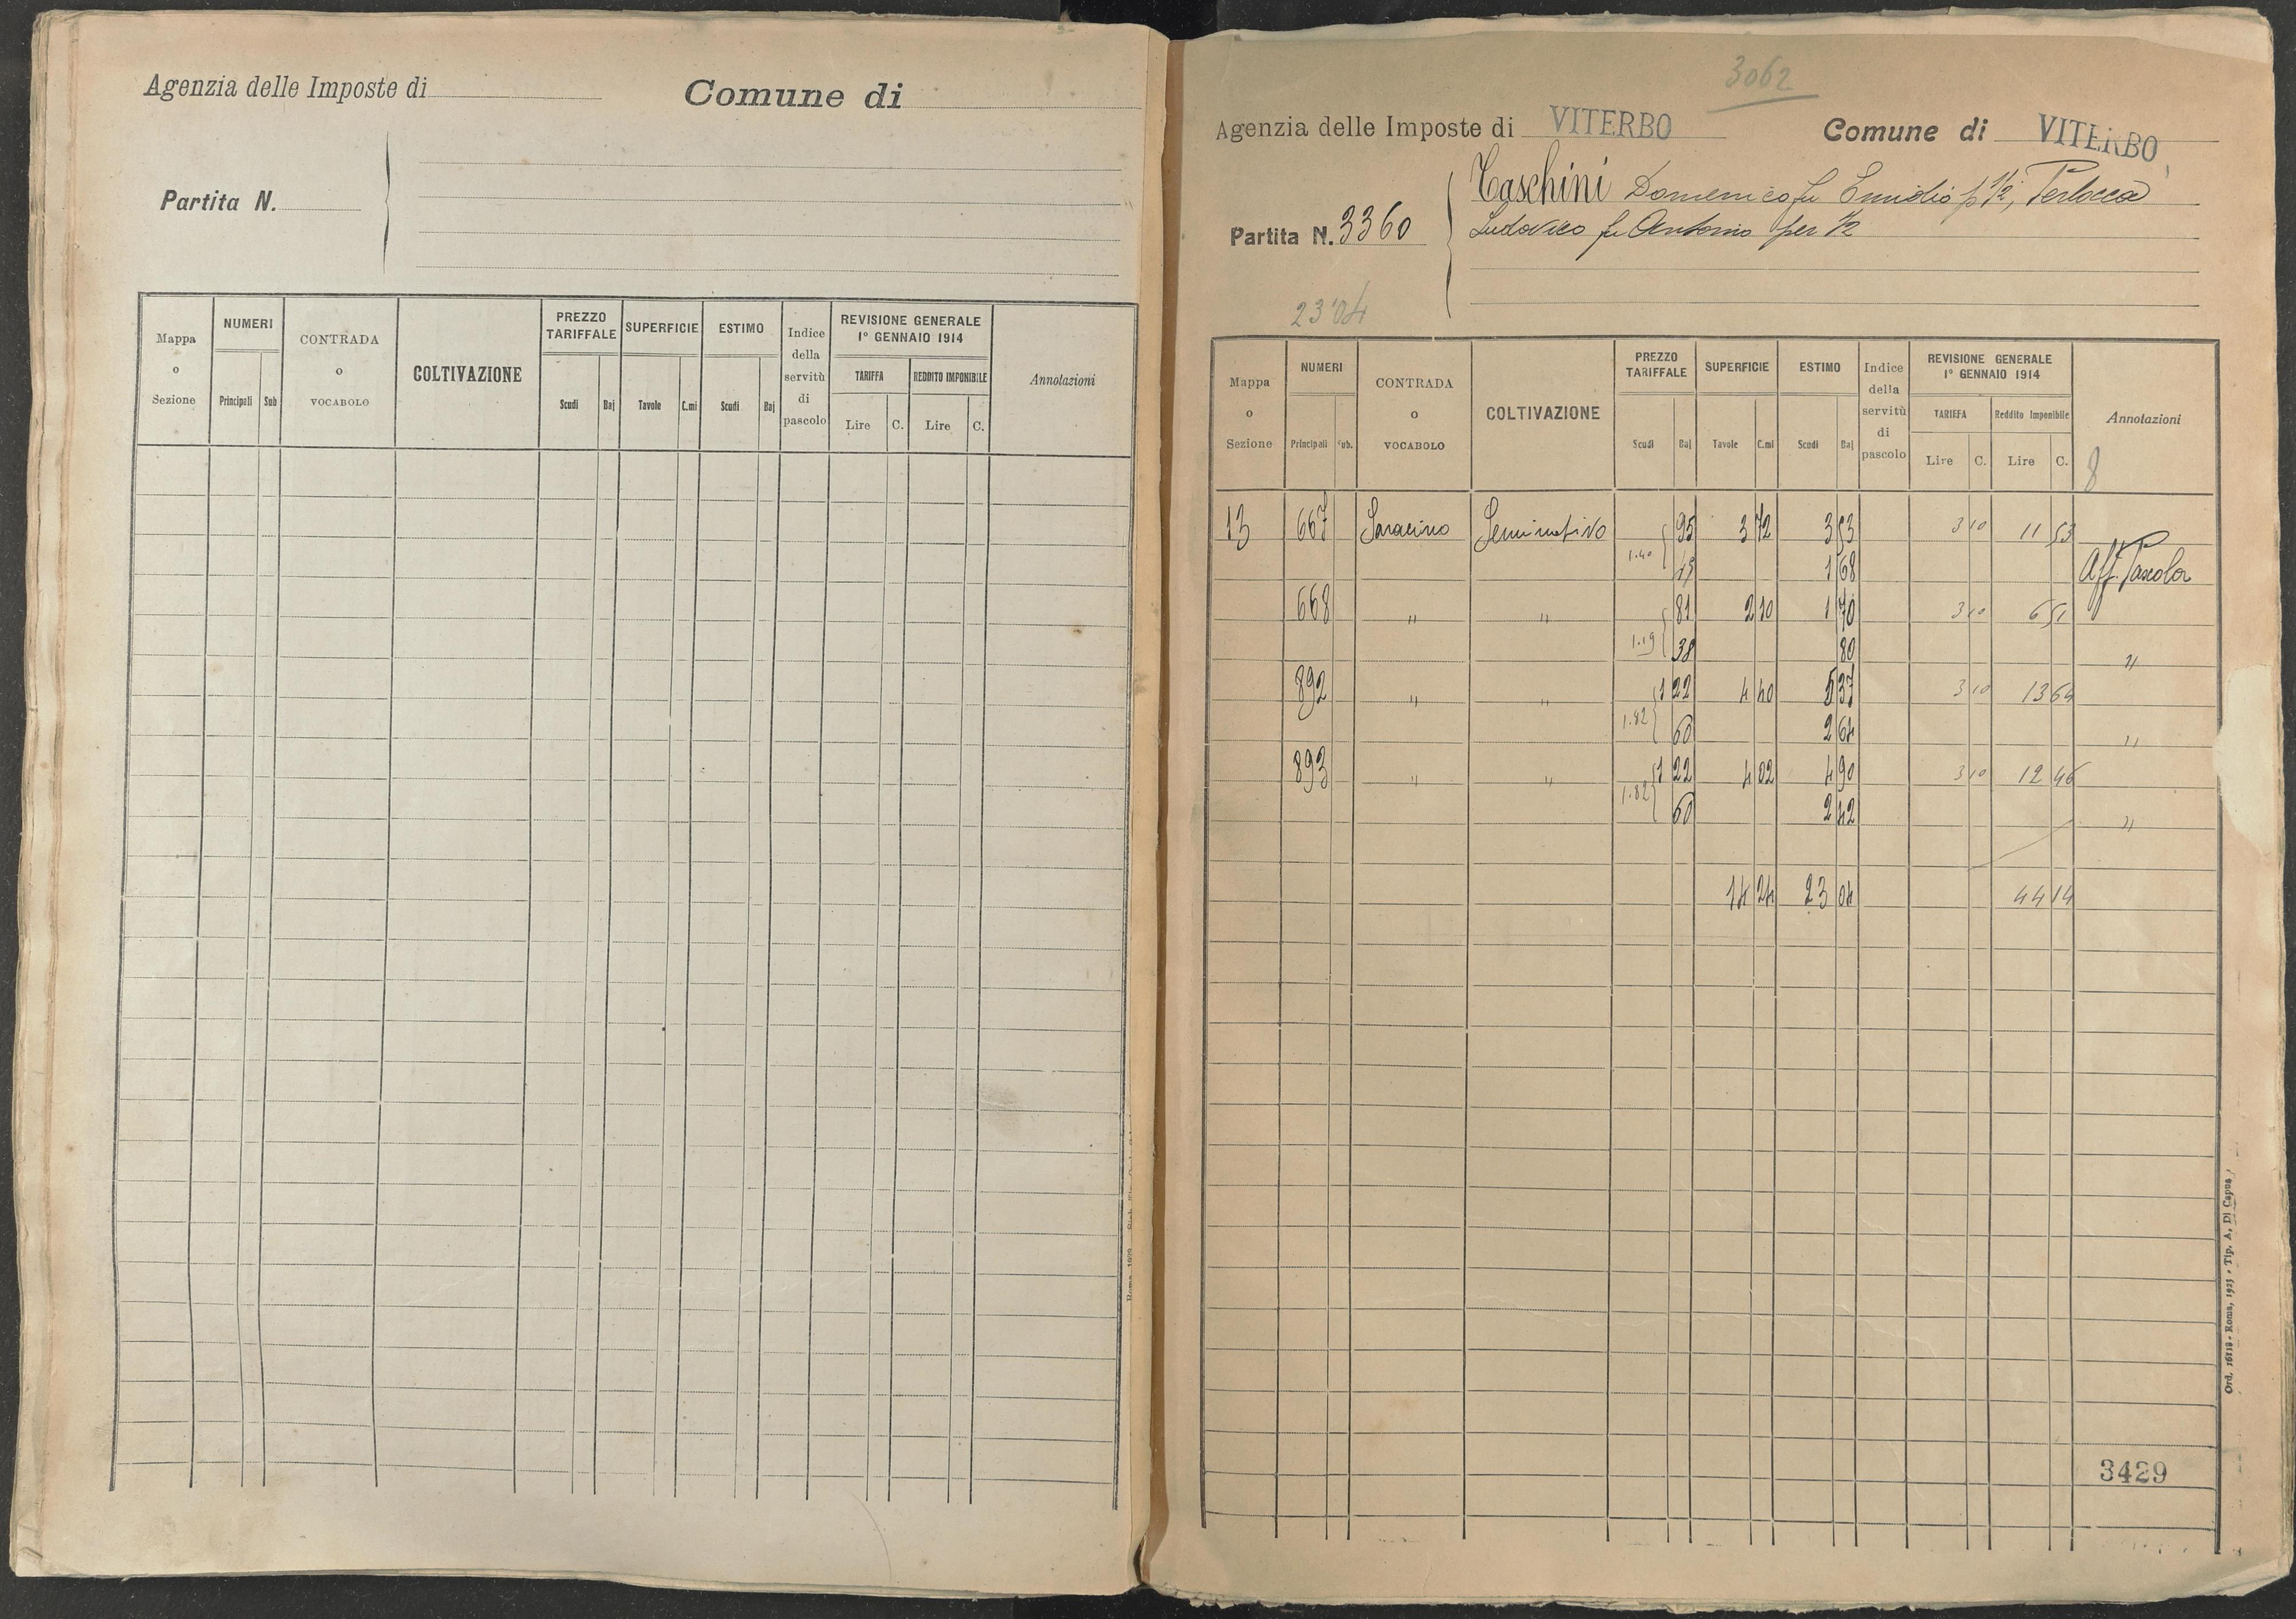 Agenzia delle Imposte di Comune di
Partita N.
Mappa o Sezione NUMERI Principali Sub CONTRADA o VOCABOLO COLTIVAZIONE PREZZO TARIFFALE Scudi Baj SUPERFICIE Tavole C.mi ESTIMO Scudi Baj Indice della servitù di pascolo REVISIONE GENERALE 1° GENNAIO 1914 TARIFFA Lire C. REDDITO IMPONIBILE Lire C. Annotazioni
3062
Agenzia delle Imposte di VITERBO Comune di VITERBO
Taschini Domenico fu Emidio p 1/2, Perlocca
Partita N. 3360 Ludovico fu Antonio per 1/2
23'04
Mappa o Sezione NUMERI Principali Sub. CONTRADA o VOCABOLO COLTIVAZIONE PREZZO TARIFFALE Scudi Baj SUPERFICIE Tavole C.mi ESTIMO Scudi Baj Indice della servitù di pascolo REVISIONE GENERALE 1° GENNAIO 1914 TARIFFA Lire C. Reddito Imponibile Lire C. Annotazioni
8
13 667 Saracino Seminativo 95 3 72 3 53 3 10 11 53
1.40 45 1 68 Aff. Pascolo
668 " " 81 2 10 1 70 3 10 6 51
1.19 38 80 "
892 " " 1 22 4 40 5 37 3 10 13 64
1.82 60 2 64 "
893 " " 1 22 4 02 4 90 3 10 12 46
1.82 60 2 42 "
14 24 23 04 44 14
3429
Ord. 16118 - Roma, 1923 - Tip. A. Di Capua